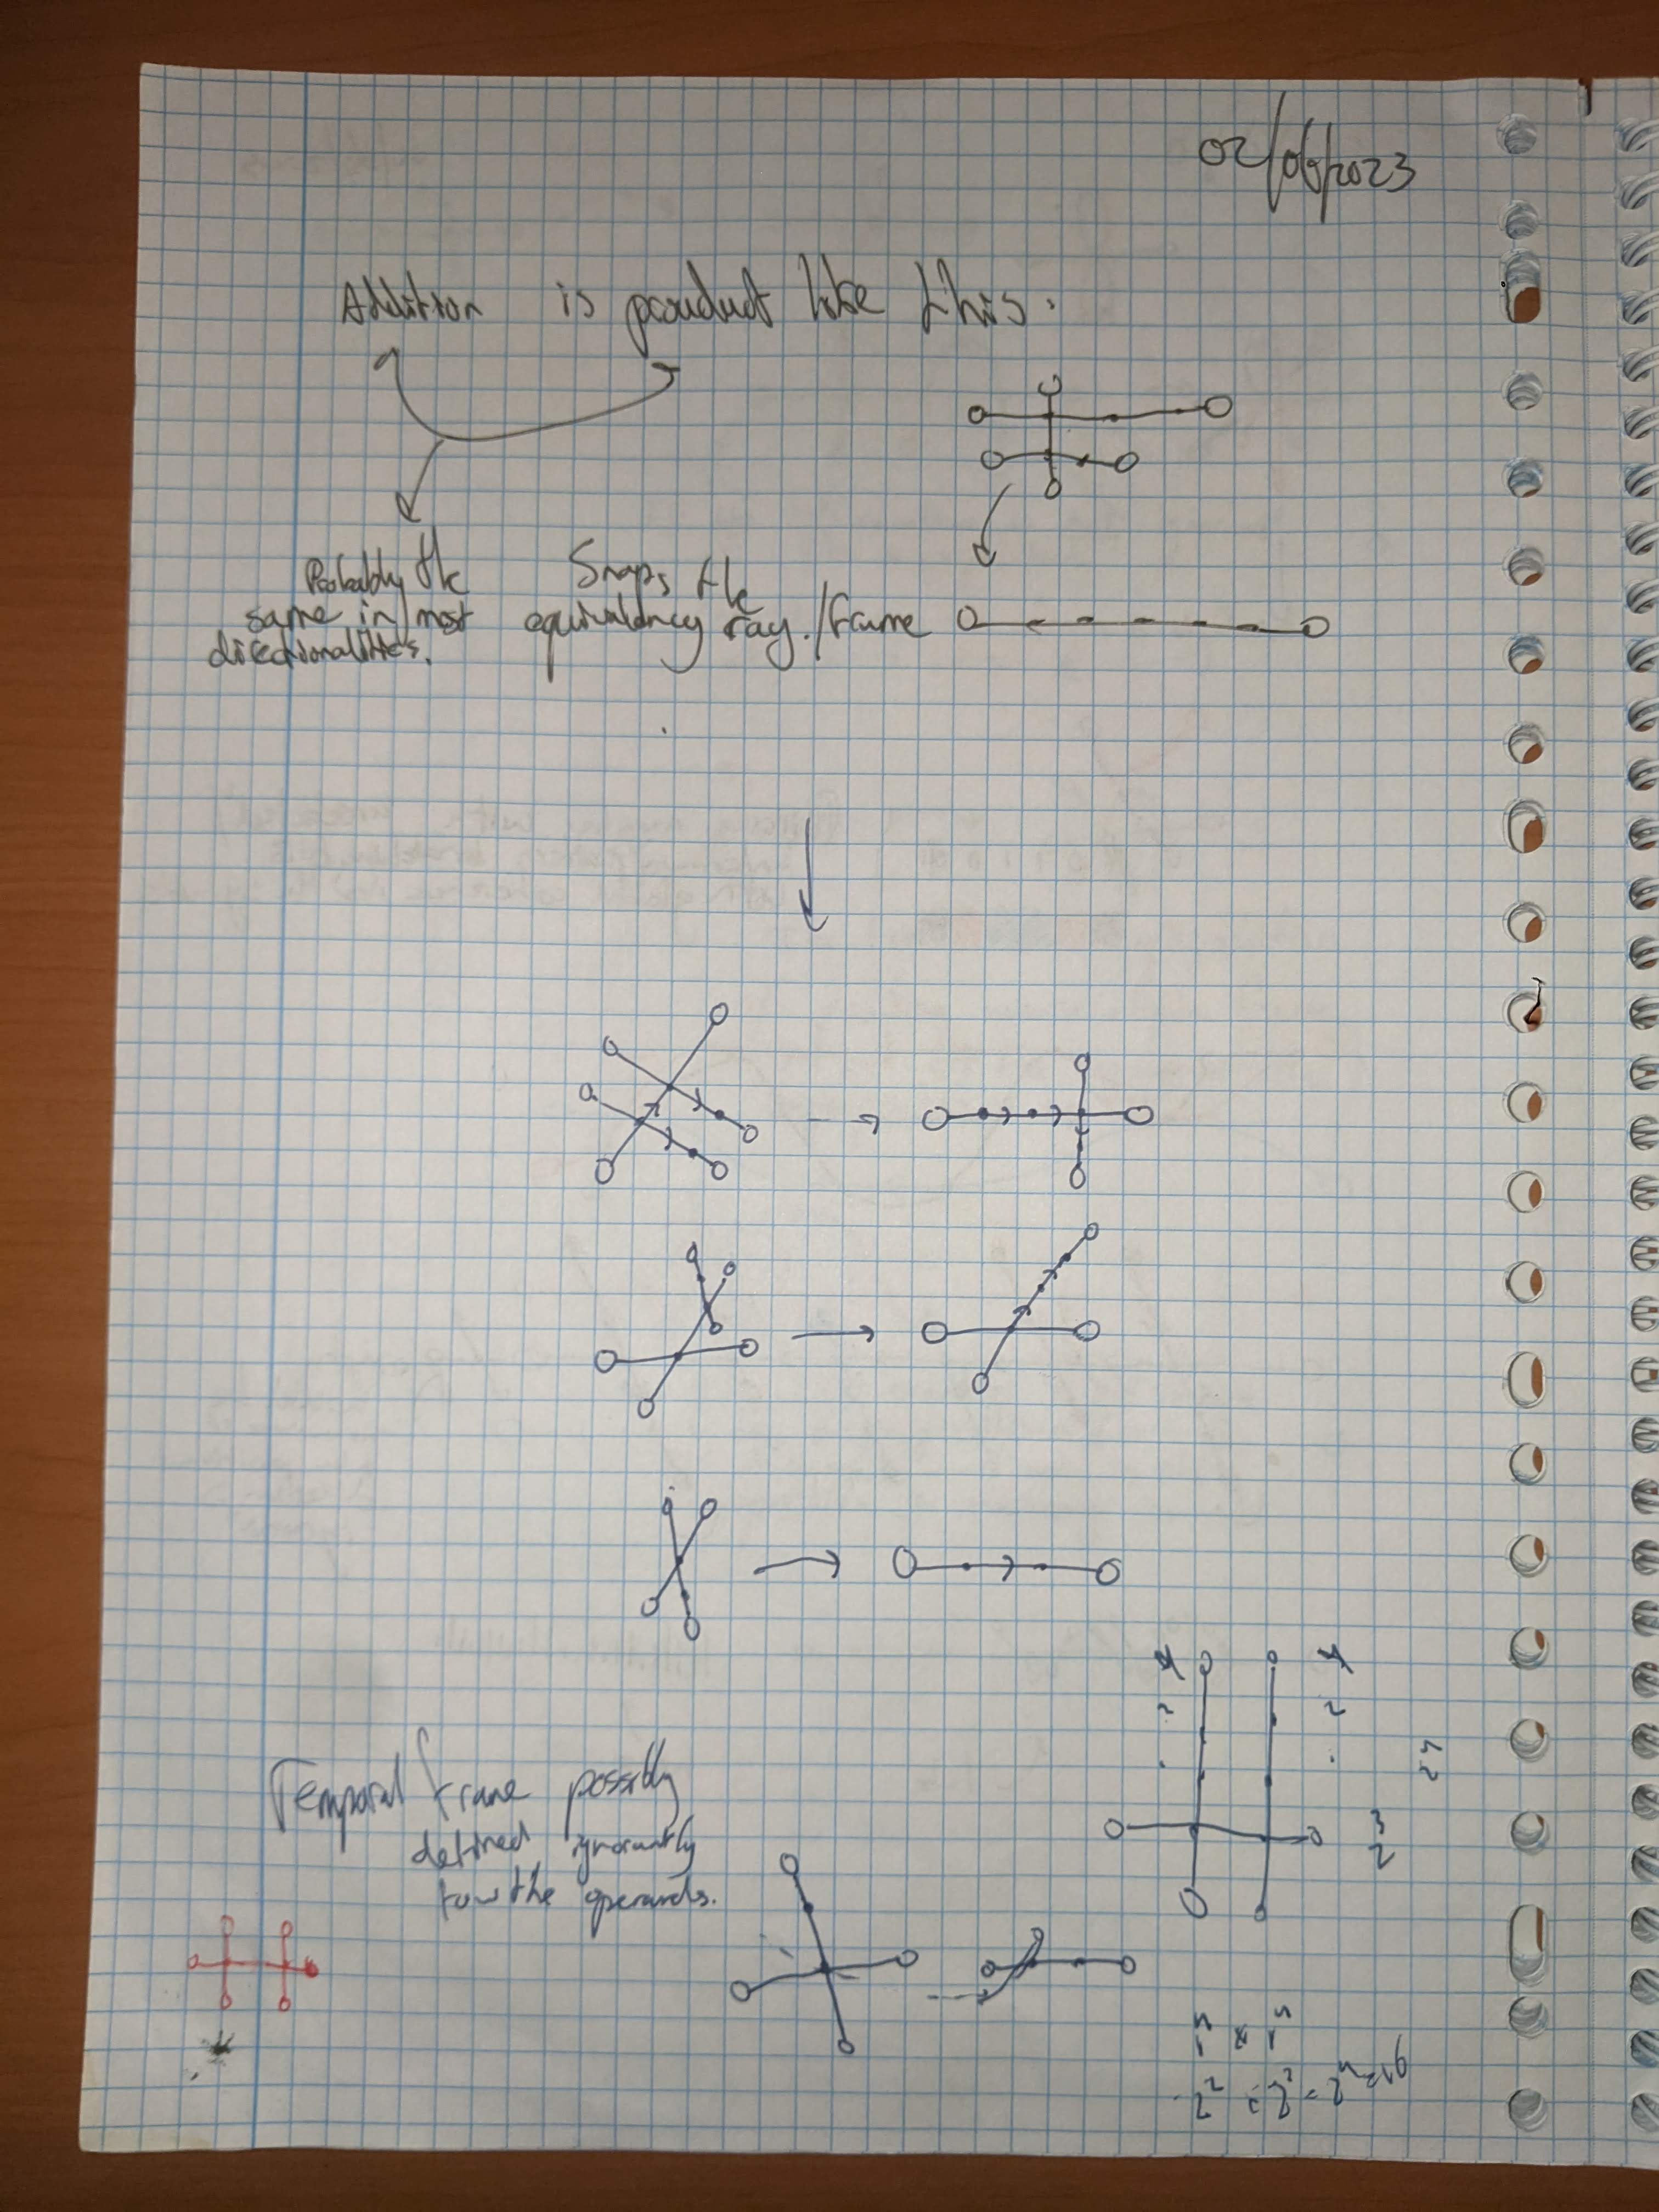 02/06/2023
Addition is product like this:
Probably the
same in most
directionalities.
Snaps the
equivalency ray./frame
Temporal frame possibly
defined ignorantly
the operands.
4 4
2 2
3
2
2² 2² = 2⁴ = 16